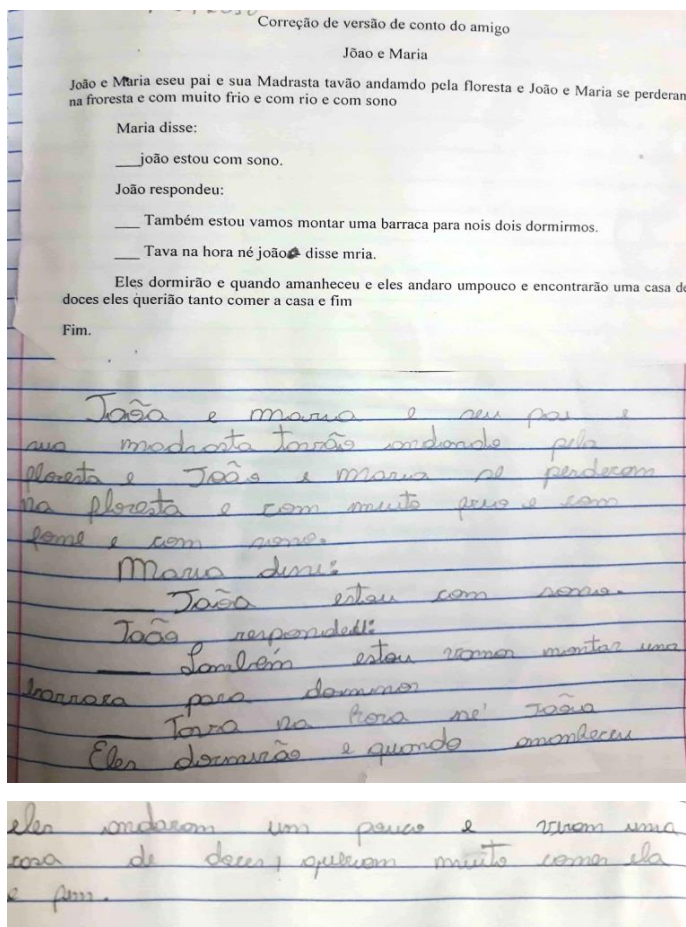 Correção de versão de conto do amigo
Jõao e Maria
João e Maria eseu pai e sua Madrasta tavão andamdo pela floresta e João e Maria se perderam
na froresta e com muito frio e com rio e com sono
Maria disse:
___joão estou com sono.
João respondeu:
___ Também estou vamos montar uma barraca para nois dois dormirmos.
___ Tava na hora né joão disse mria.
Eles dormirão e quando amanheceu e eles andaro umpouco e encontrarão uma casa de
doces eles querião tanto comer a casa e fim
Fim.
João e maria e seu pai e
sua madrasta tavão andando pela
floresta e João e maria se perderam
na floresta e com muito frio e com
fome e com sono.
Maria disse:
___ João estou com sono.
João respondeu:
___ Também estou vamos montar uma
barraca para dormimos
___ Tava na hora né João
Eles dormirão e quando amanheceu
eles andaram um pouco e viram uma
casa de doces, queriam muito comer ela
e fim.